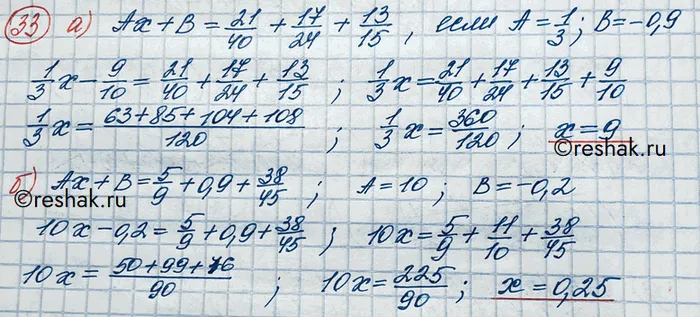 33 а) Ax + B = 21/40 + 17/24 + 13/15, если A = 1/3; B = -0,9
1/3 x - 9/10 = 21/40 + 17/24 + 13/15 ; 1/3 x = 21/40 + 17/24 + 13/15 + 9/10
1/3 x = (63 + 85 + 104 + 108)/120 ; 1/3 x = 360/120 ; x = 9
©reshak.ru ©reshak.ru
б) Ax + B = 5/9 + 0,9 + 38/45 ; A = 10 ; B = -0,2
10x - 0,2 = 5/9 + 0,9 + 38/45 ; 10x = 5/9 + 11/10 + 38/45
10x = (50 + 99 + 76)/90 ; 10x = 225/90 ; x = 0,25
©reshak.ru ©reshak.ru